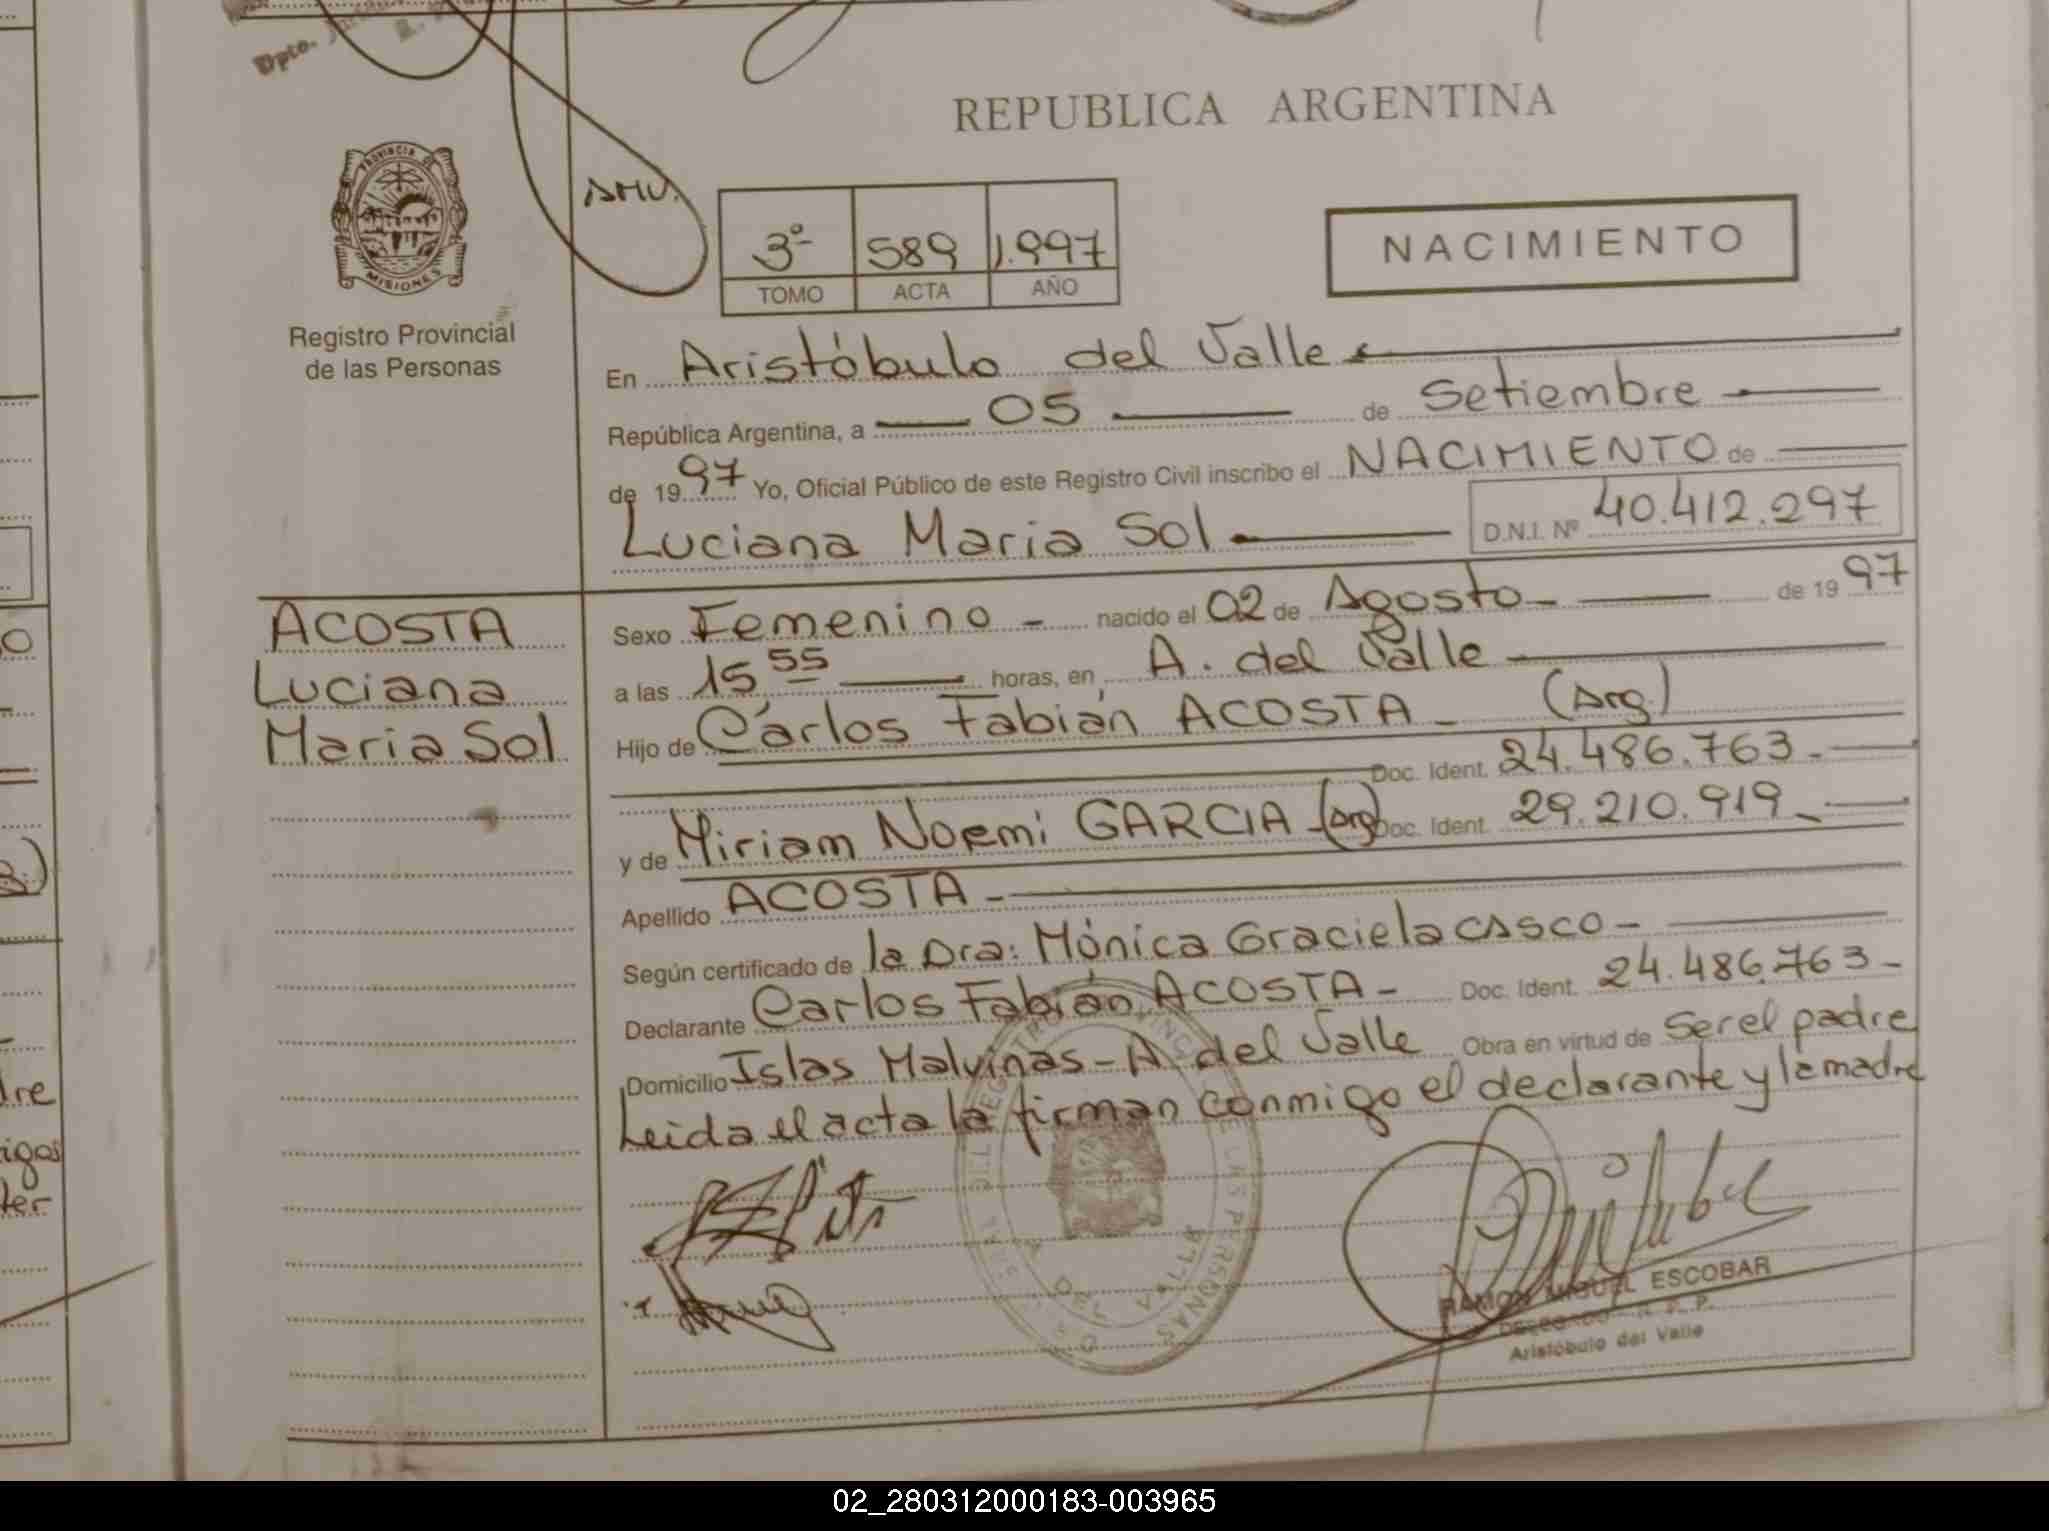 Dpto.
REPUBLICA ARGENTINA
PROVINCIA DE
MISIONES
AMV.
3º 589 1.997
TOMO ACTA AÑO
NACIMIENTO
Registro Provincial
de las Personas
En Aristóbulo del Valle
República Argentina, a 05 de Setiembre
de 1997 Yo, Oficial Público de este Registro Civil inscribo el NACIMIENTO de
Luciana Maria Sol D.N.I. Nº 40.412.297
ACOSTA
Luciana
Maria Sol
Sexo Femenino - nacido el 02 de Agosto - de 1997
a las 15 55 horas, en A. del Valle
Hijo de Carlos Fabián ACOSTA - (Arg.)
Doc. Ident. 24.486.763 -
y de Miriam Noemi GARCIA - (Arg) Doc. Ident. 29.210.919 -
Apellido ACOSTA -
Según certificado de la Dra: Mónica Graciela CASCO -
Declarante Carlos Fabián ACOSTA - Doc. Ident. 24.486.763 -
Domicilio Islas Malvinas - A. del Valle Obra en virtud de Ser el padre
Leida el acta la firman conmigo el declarante y la madre
RAMON MIGUEL ESCOBAR
DELEGADO R. P. P.
Aristóbulo del Valle
02_280312000183-003965